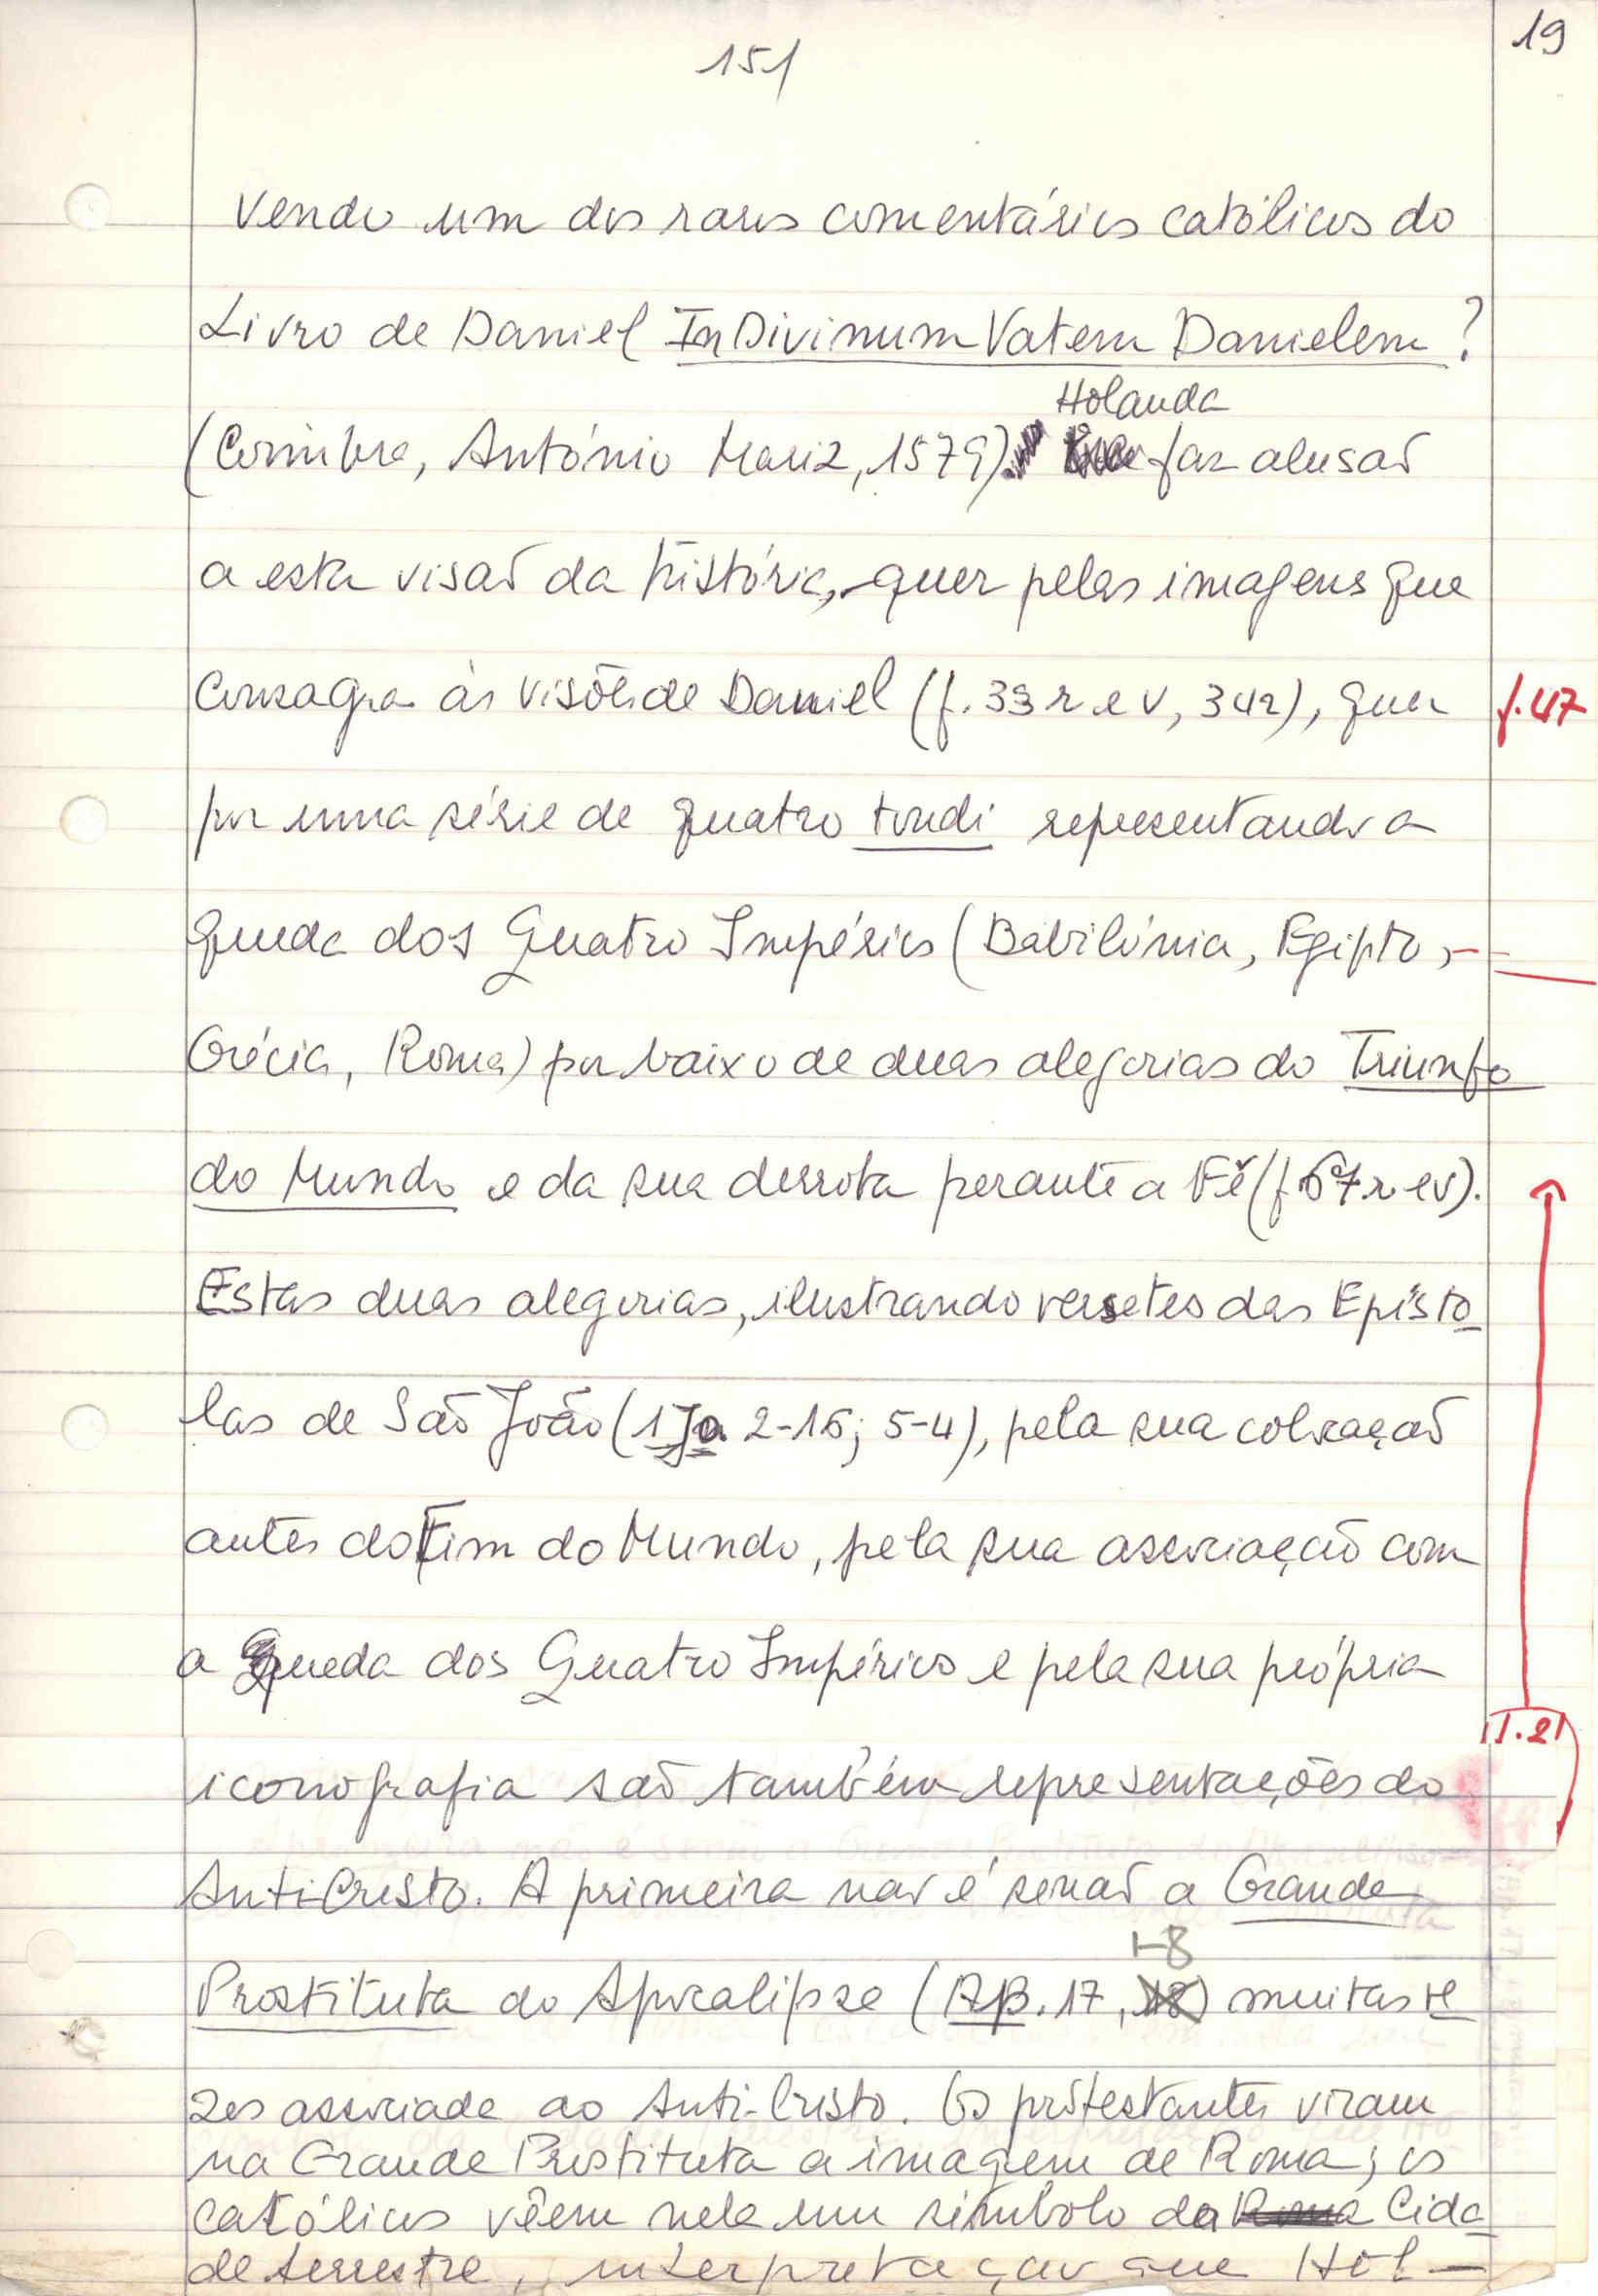 19
151
vendo um dos raros comentários católicos do
Livro de Daniel In Divinum Vatem Danielem?
Holanda
(Coimbra, António Mariz, 1579). faz alusão
a esta visão da história, quer pelas imagens que
consagra às visões de Daniel (f. 33 r e v, 34r), quer
f. 47
por uma série de quatro tondi representando a
queda dos Quatro Impérios (Babilónia, Egipto,
Grécia, Roma) por baixo de duas alegorias do Triunfo
do Mundo e da sua derrota perante a Fé (f. 67 r e v).
Estas duas alegorias, ilustrando versetes das Episto
las de São João (1 Jo 2-16; 5-4), pela sua colocação
antes do Fim do Mundo, pela sua associação com
a Queda dos Quatro Impérios e pela sua própria
iconografia são também representações do
AntiCristo. A primeira não é senão a Grande
1-8
Prostituta do Apocalipse (Ap. 17, 18) muitas ve
zes associada ao Anti-Cristo. Os protestantes viram
na Grande Prostituta a imagem de Roma; os
católicos vêem nela um símbolo da Cida
de terrestre, interpretação que Hol-